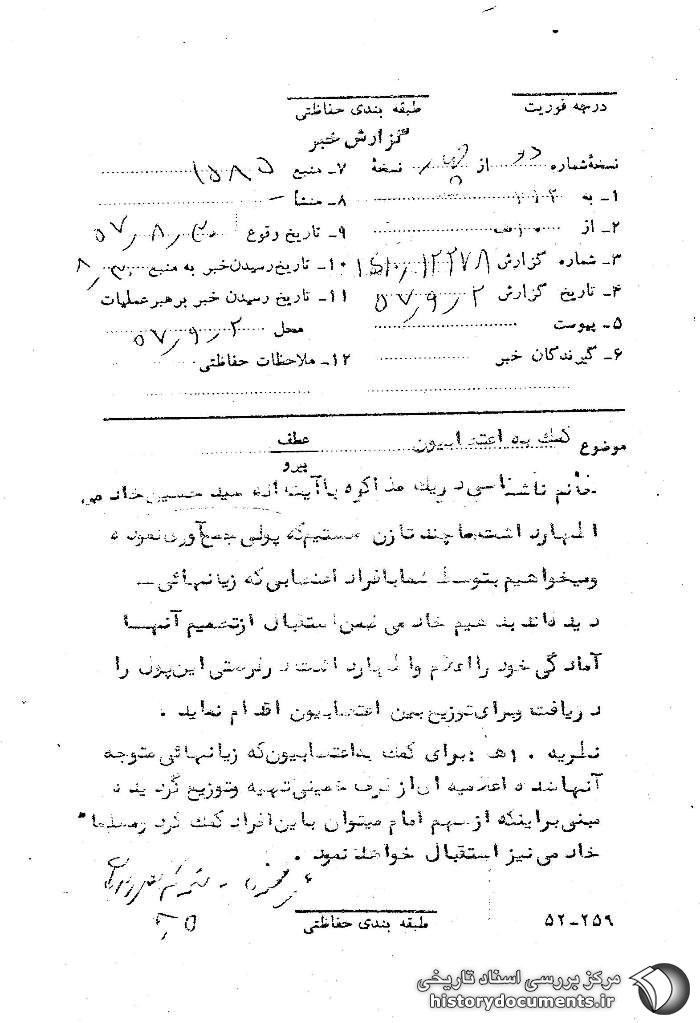 درجه فوریت
طبقه بندی حفاظتی
گزارش خبر
نسخهٔ شماره دو از نسخهٔ
۱ـ به ۳۱۲
۲ـ از ۱۰هـ
۳ـ شماره گزارش ۱۲۲۷۸
۴ـ تاریخ گزارش ۵۷٫۹٫۲
۵ـ پیوست
۶ـ گیرندگان خبر
۷ـ منبع ۱۵۸۵
۸ـ منشأ ـ
۹ـ تاریخ وقوع ۵۷٫۸٫۳۰
۱۰ـ تاریخ رسیدن خبر به منبع ۸٫۳۰
۱۱ـ تاریخ رسیدن خبر برهبر عملیات
محل ۵۷٫۹٫۲
۱۲ـ ملاحظات حفاظتی
موضوع کمک به اعتصابیون
عطف
پیرو
خانم ناشناسی در یک مذاکره با آیت اله سید حسین خادمی
اظهار داشت ما چند تا زن هستیم که پولی جمع آوری نموده
و میخواهیم بتوسط شما بافراد اعتصابی که زیانهائی ـ
دیده اند بدهیم خادمی ضمن استقبال از تصمیم آنها
آمادگی خود را اعلام و اظهار داشت در فرصتی این پول را
دریافت و برای توزیع بین اعتصابیون اقدام نماید .
نظریه ۱۰هـ : برای کمک به اعتصابیون که زیانهائی متوجه
آنها شده اعلامیه ای از طرف خمینی تهیه و توزیع گردیده
مبنی براینکه از سهم امام میتوان باین افراد کمک کرد و مسلما"
خادمی نیز استقبال خواهد نمود .
طبقه بندی حفاظتی
۵۲ـ۲۵۹
مرکز بررسی اسناد تاریخی
historydocuments.ir